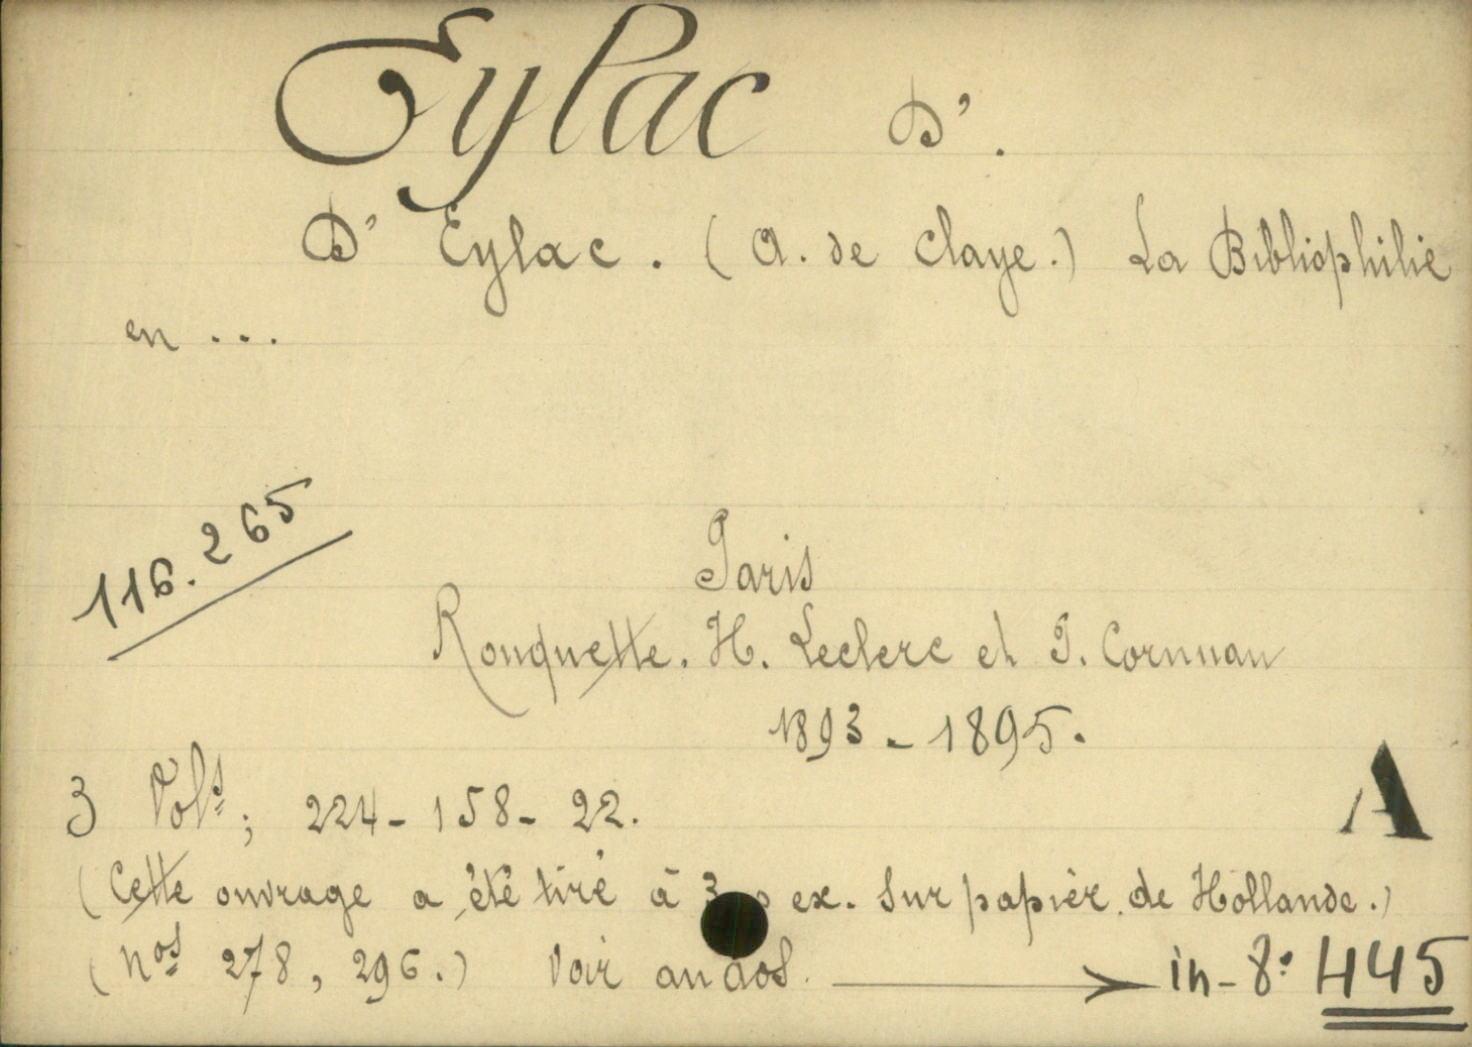 Eylac D'.
D' Eylac. (A. de Claye.) La Bibliophilie
en ...
116.265
Paris
Rouquette. H. Leclerc et P. Cornuau
1893 - 1895.
A
3 Vols; 224 - 158 - 22.
(Cette ouvrage a été tiré à ex. sur papier de Hollande.)
(Nos 278, 296.) Voir au dos. in-8º 445